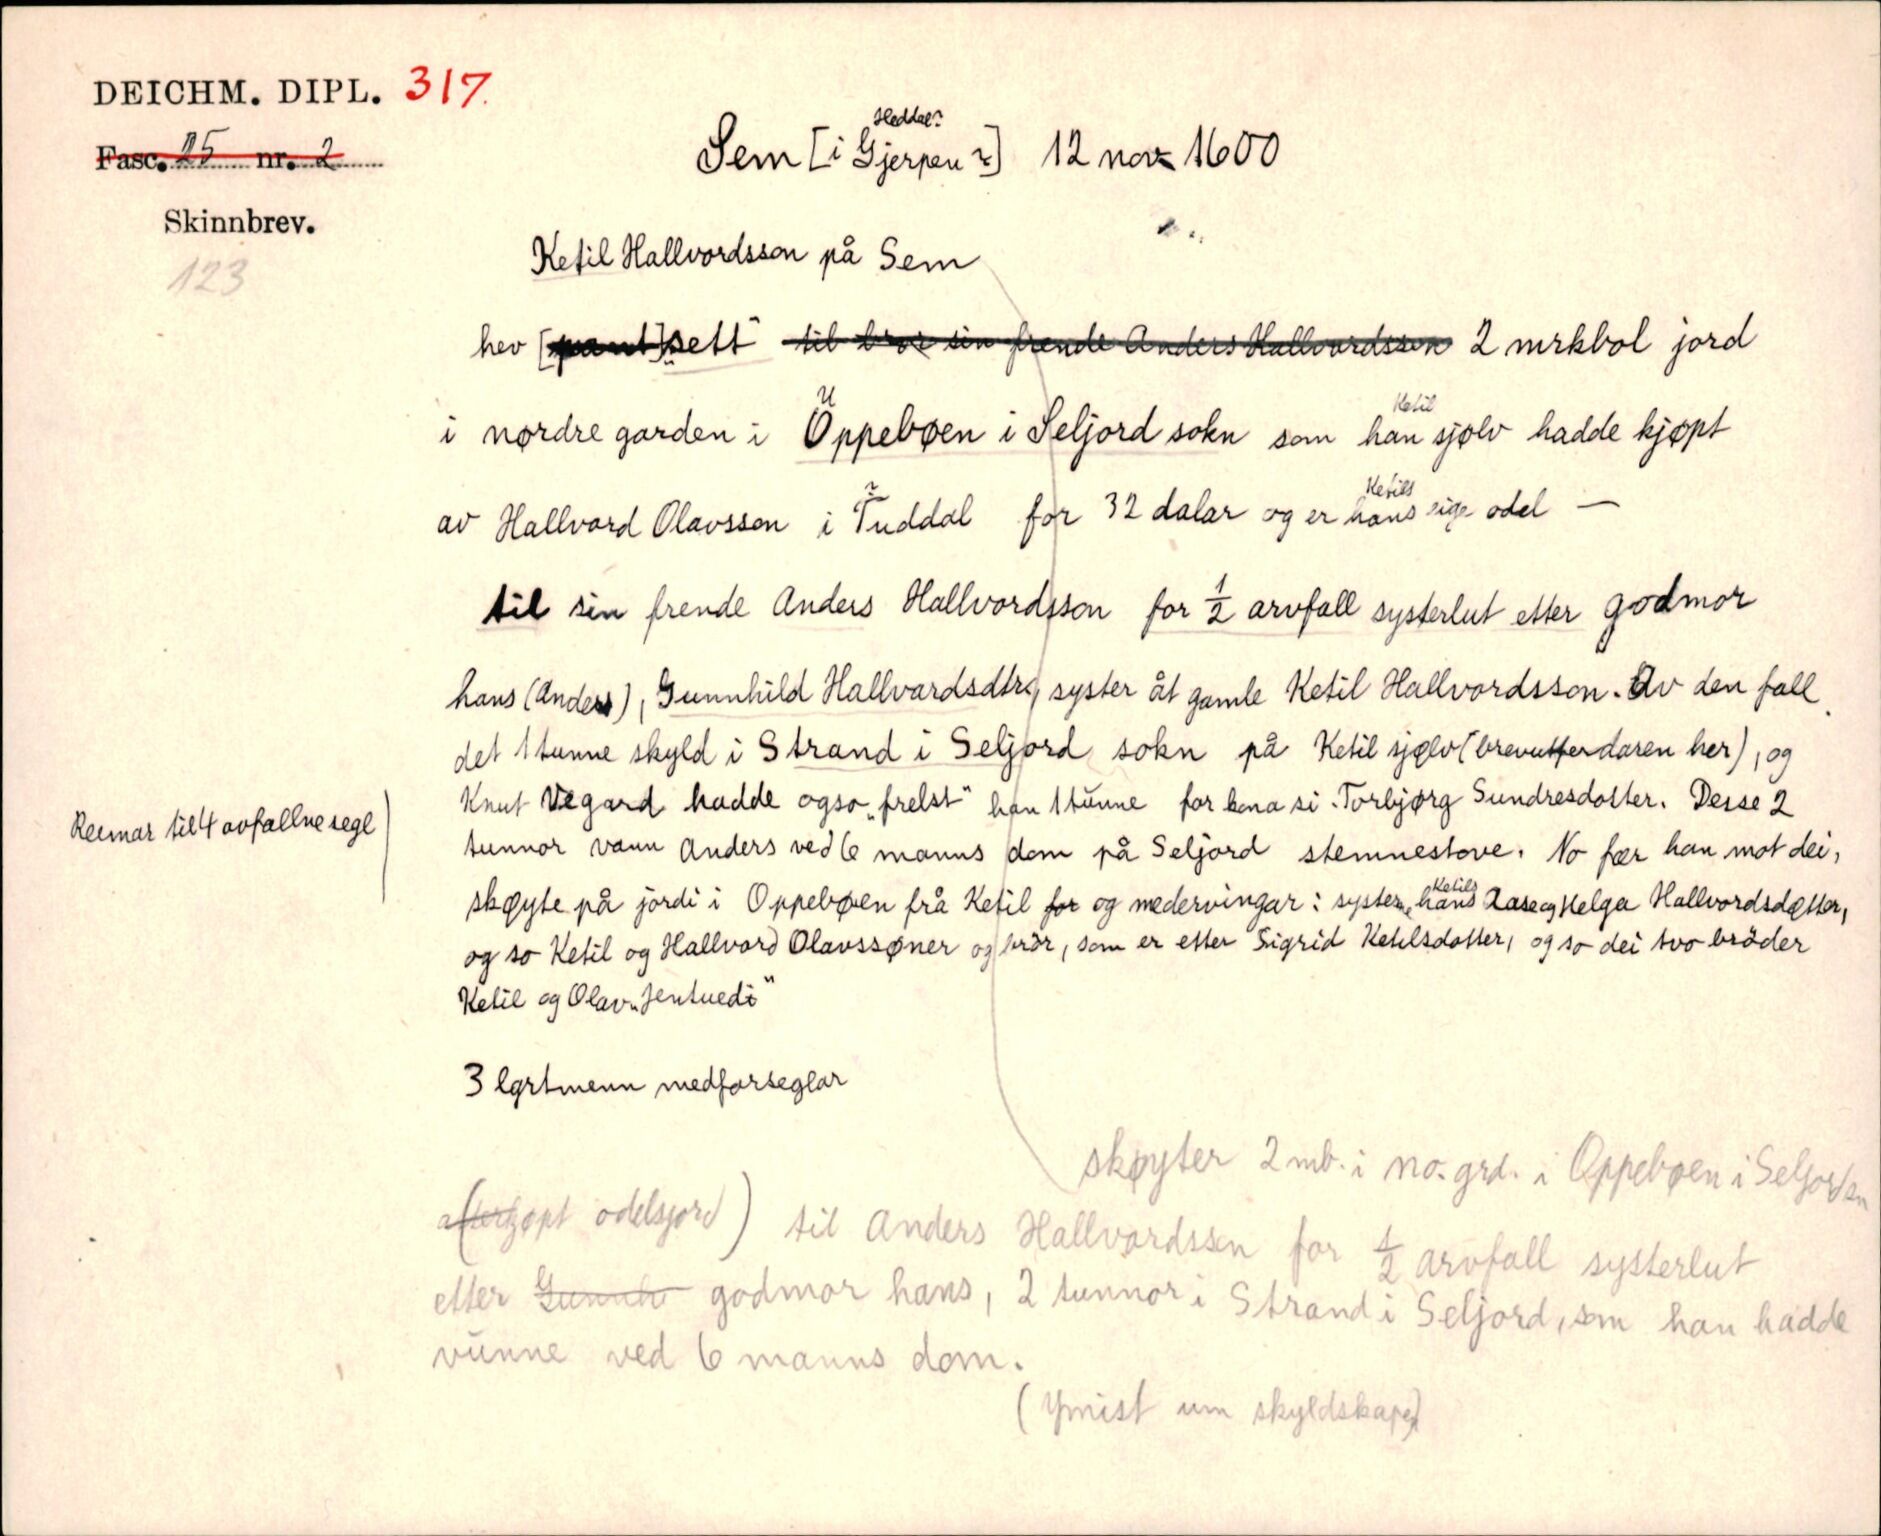 DEICHM. DIPL. 317.
Fasc. 25 nr. 2
Skinnbrev.
123
Heddal?
Sem [i Gjerpen?] 12 nov 1600
Ketil Hallvordsson på Sem
hev [pant]„sett“ til bror sin frende Anders Hallvardsson 2 mrkbol jord
U Ketil
i nørdre garden i Öppebøen i Seljord sokn som han sjølv hadde kjøpt
? Ketils
av Hallvord Olavsson i Tuddal for 32 dalar og er hans eige odel —
til sin frende Anders Hallvordsson for ½ arvfall systerlut etter godmor
hans (Anders), Gunnhild Hallvardsdtr., syster åt gamle Ketil Hallvordsson. Av den fall
det 1 tunne skyld i Strand i Seljord sokn på Ketil sjølv (brevutferdaren her), og
Knut Vegard hadde ogso „frelst“ han 1 tunne for kona si Torbjørg Sundresdotter. Desse 2
tunnor vann Anders ved 6 manns dom på Seljord stemnestove. No fær han mot dei,
Ketils
skøyte på jordi i Oppebøen frå Ketil for og medervingar: systerne hans Aase og Helga Hallvordsdøtter,
og so Ketil og Hallvord Olavssøner og brör, som er etter Sigrid Ketilsdotter, og so dei tvo bröder
Ketil og Olav „Jentuedi“
3 lgrtmenn medforseglar
Reimar til 4 avfallne segl
skøyter 2 mb. i no. grd. i Oppebøen i Seljord sn
(kjøpt odelsjord) til Anders Hallvordsson for ½ arvfall systerlut
etter Gunnh godmor hans, 2 tunnor i Strand i Seljord, som han hadde
vunne ved 6 manns dom.
(Ymist um skyldskapen)